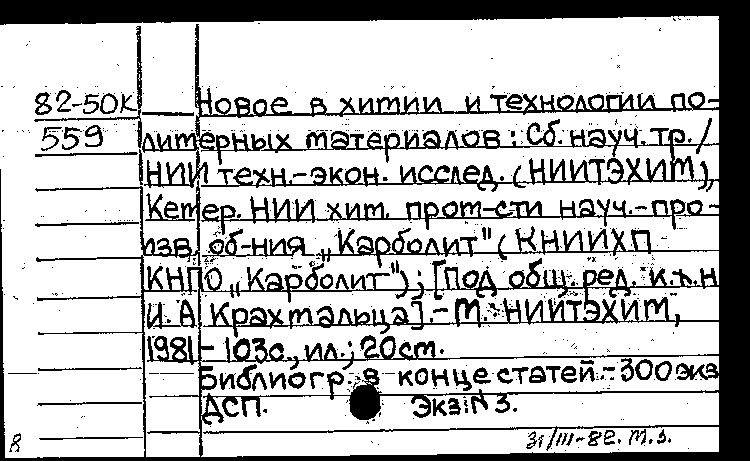 82-50К Новое в химии и технологии по-
559 лимерных материалов: Сб. науч. тр./
НИИ техн.-экон. исслед. (НИИТЭХИМ),
Кемер. НИИ хим. пром-сти науч.-про-
изв. об-ния „Карболит" (КНИИХП
КНПО „Карболит"); [Под общ. ред. к.х.н
И. А Крахмальца]. - М.: НИИТЭХИМ,
1981 - 103с., ил.; 20 см.
Библиогр. в конце статей. - 300 экз
ДСП. Экз. N 3.
31/III-82. М.З.